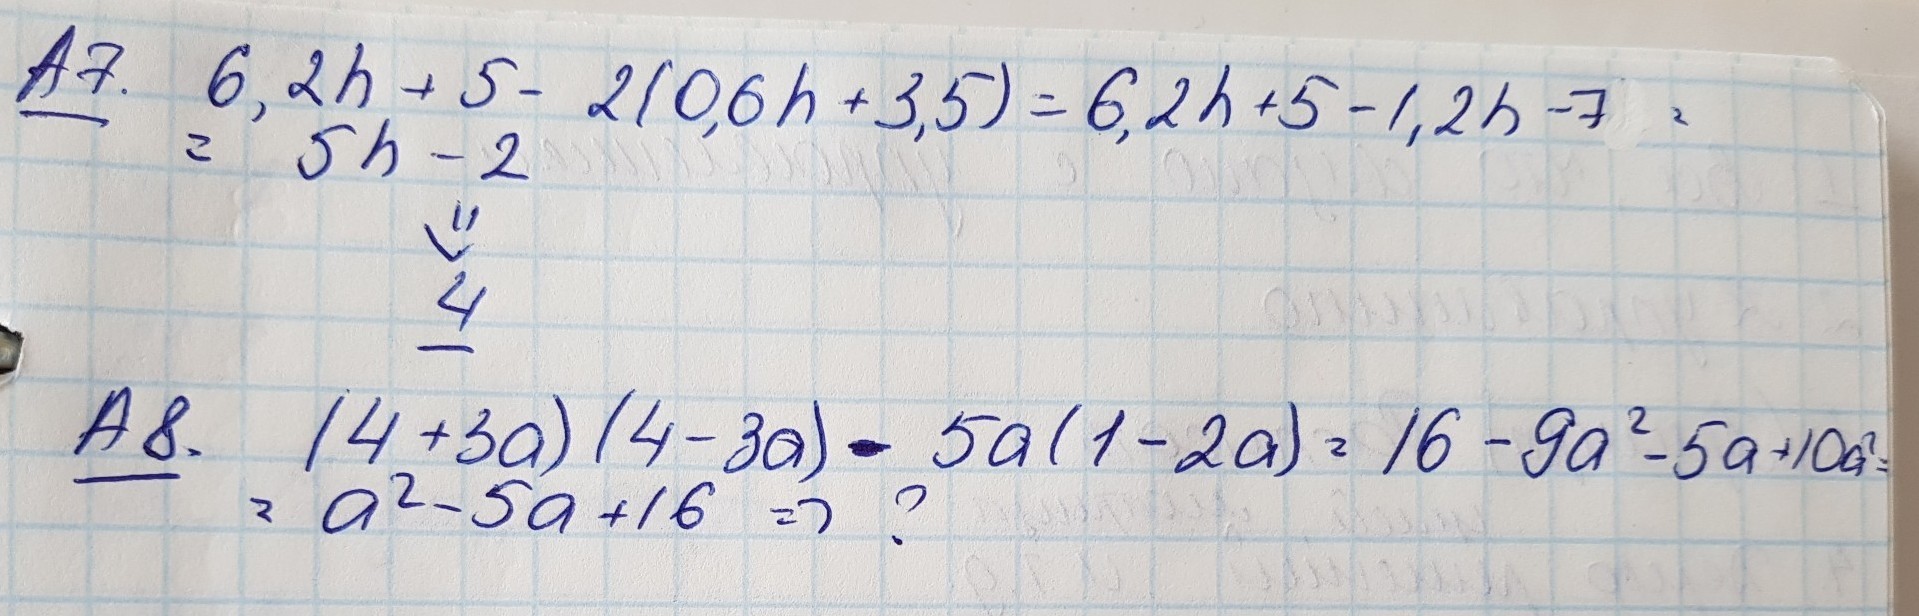 A7. 6,2h + 5 - 2(0,6h + 3,5) = 6,2h + 5 - 1,2h - 7 =
= 5h - 2
⇓
4
A8. (4 + 3a)(4 - 3a) - 5a(1 - 2a) = 16 - 9a² - 5a + 10a² =
= a² - 5a + 16 => ?